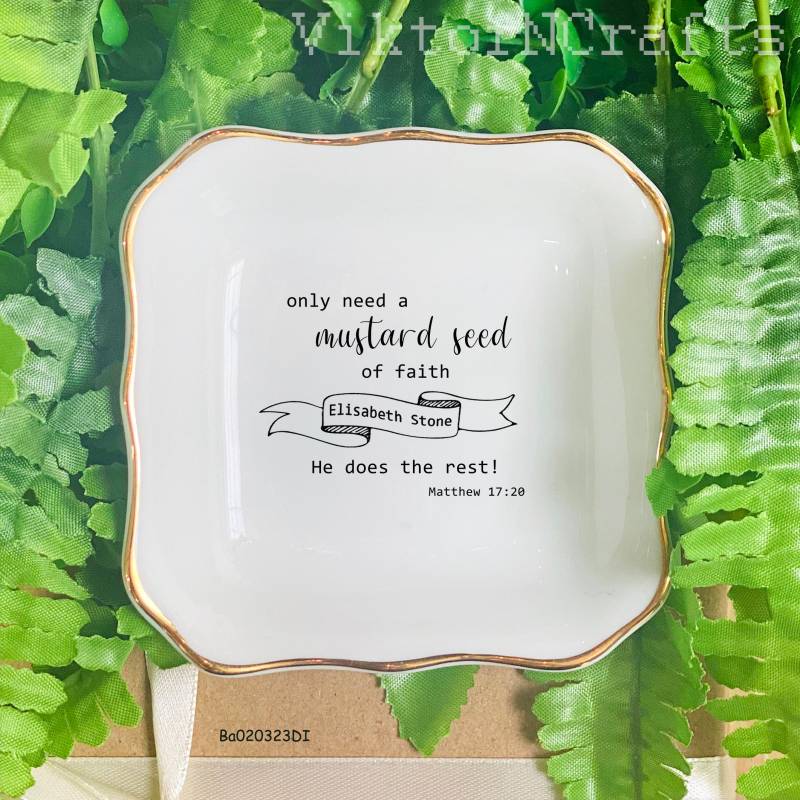 ViktoiNCrafts
only need a
mustard seed
of faith
Elisabeth Stone
He does the rest!
Matthew 17:20
Ba020323DI